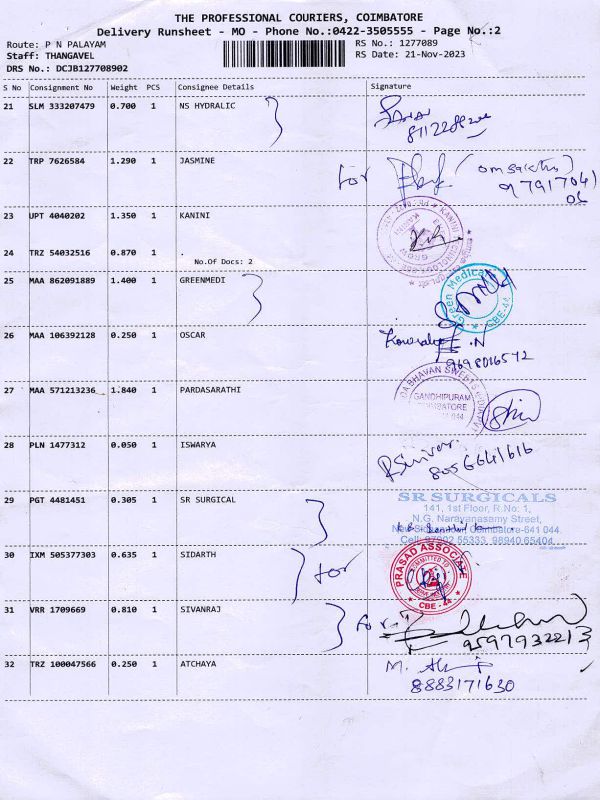 THE PROFESSIONAL COURIERS, COIMBATORE
Delivery Runsheet - MO - Phone No.:0422-3505555 - Page No.:2
Route: P N PALAYAM
RS No.: 1277089
Staff: THANGAVEL
RS Date: 21-Nov-2023
DRS No.: DCJB127708902
S No Consignment No Weight PCS Consignee Details Signature
21 SLM 333207479 0.700 1 NS HYDRALIC
22 TRP 7626584 1.290 1 JASMINE
for
23 UPT 4040202 1.350 1 KANINI
24 TRZ 54032516 0.870 1
No.Of Docs: 2
25 MAA 862091889 1.400 1 GREENMEDI
Green Medical
CBE-44
26 MAA 106392128 0.250 1 OSCAR
9698016572
27 MAA 571213236 1.840 1 PARDASARATHI
GANDHIPURAM
COIMBATORE
28 PLN 1477312 0.050 1 ISWARYA
8056641616
29 PGT 4481451 0.305 1 SR SURGICAL
SR SURGICALS
141, 1st Floor, R.No. 1,
N.G. Narayanasamy Street,
New Siddhapudur, Coimbatore-641 044.
Cell: 97902 55333, 98940 65404
30 IXM 505377303 0.635 1 SIDARTH
for
PRASAD ASSOCIATE
CBE - 44
31 VRR 1709669 0.810 1 SIVANRAJ
For
9597932213
32 TRZ 100047566 0.250 1 ATCHAYA
8883171630